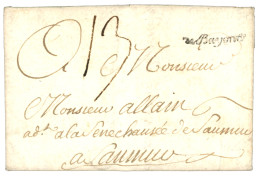 de Bayonne
13
A Monsieur
Monsieur allain
adt. a la Senechaussée de Saumur
a Saumur